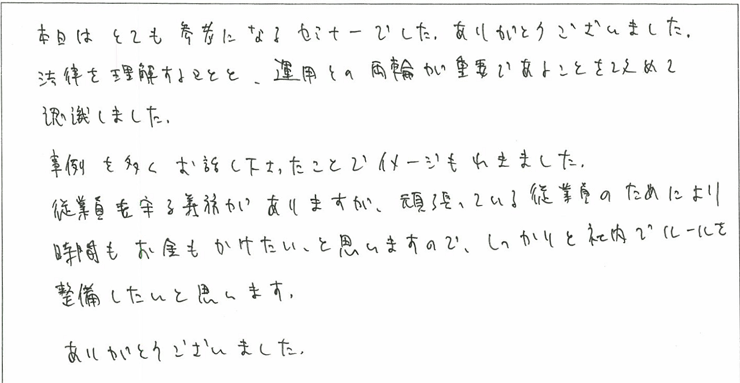 本日はとても参考になるセミナーでした。ありがとうございました。
法律を理解することと、運用との両輪が重要であることを改めて
認識しました。
事例を多くお話し下さったことでイメージもわきました。
従業員を守る義務がありますが、頑張っている従業員のためにより
時間もお金もかけたい、と思いますので、しっかりと社内でルールを
整備したいと思います。
ありがとうございました。